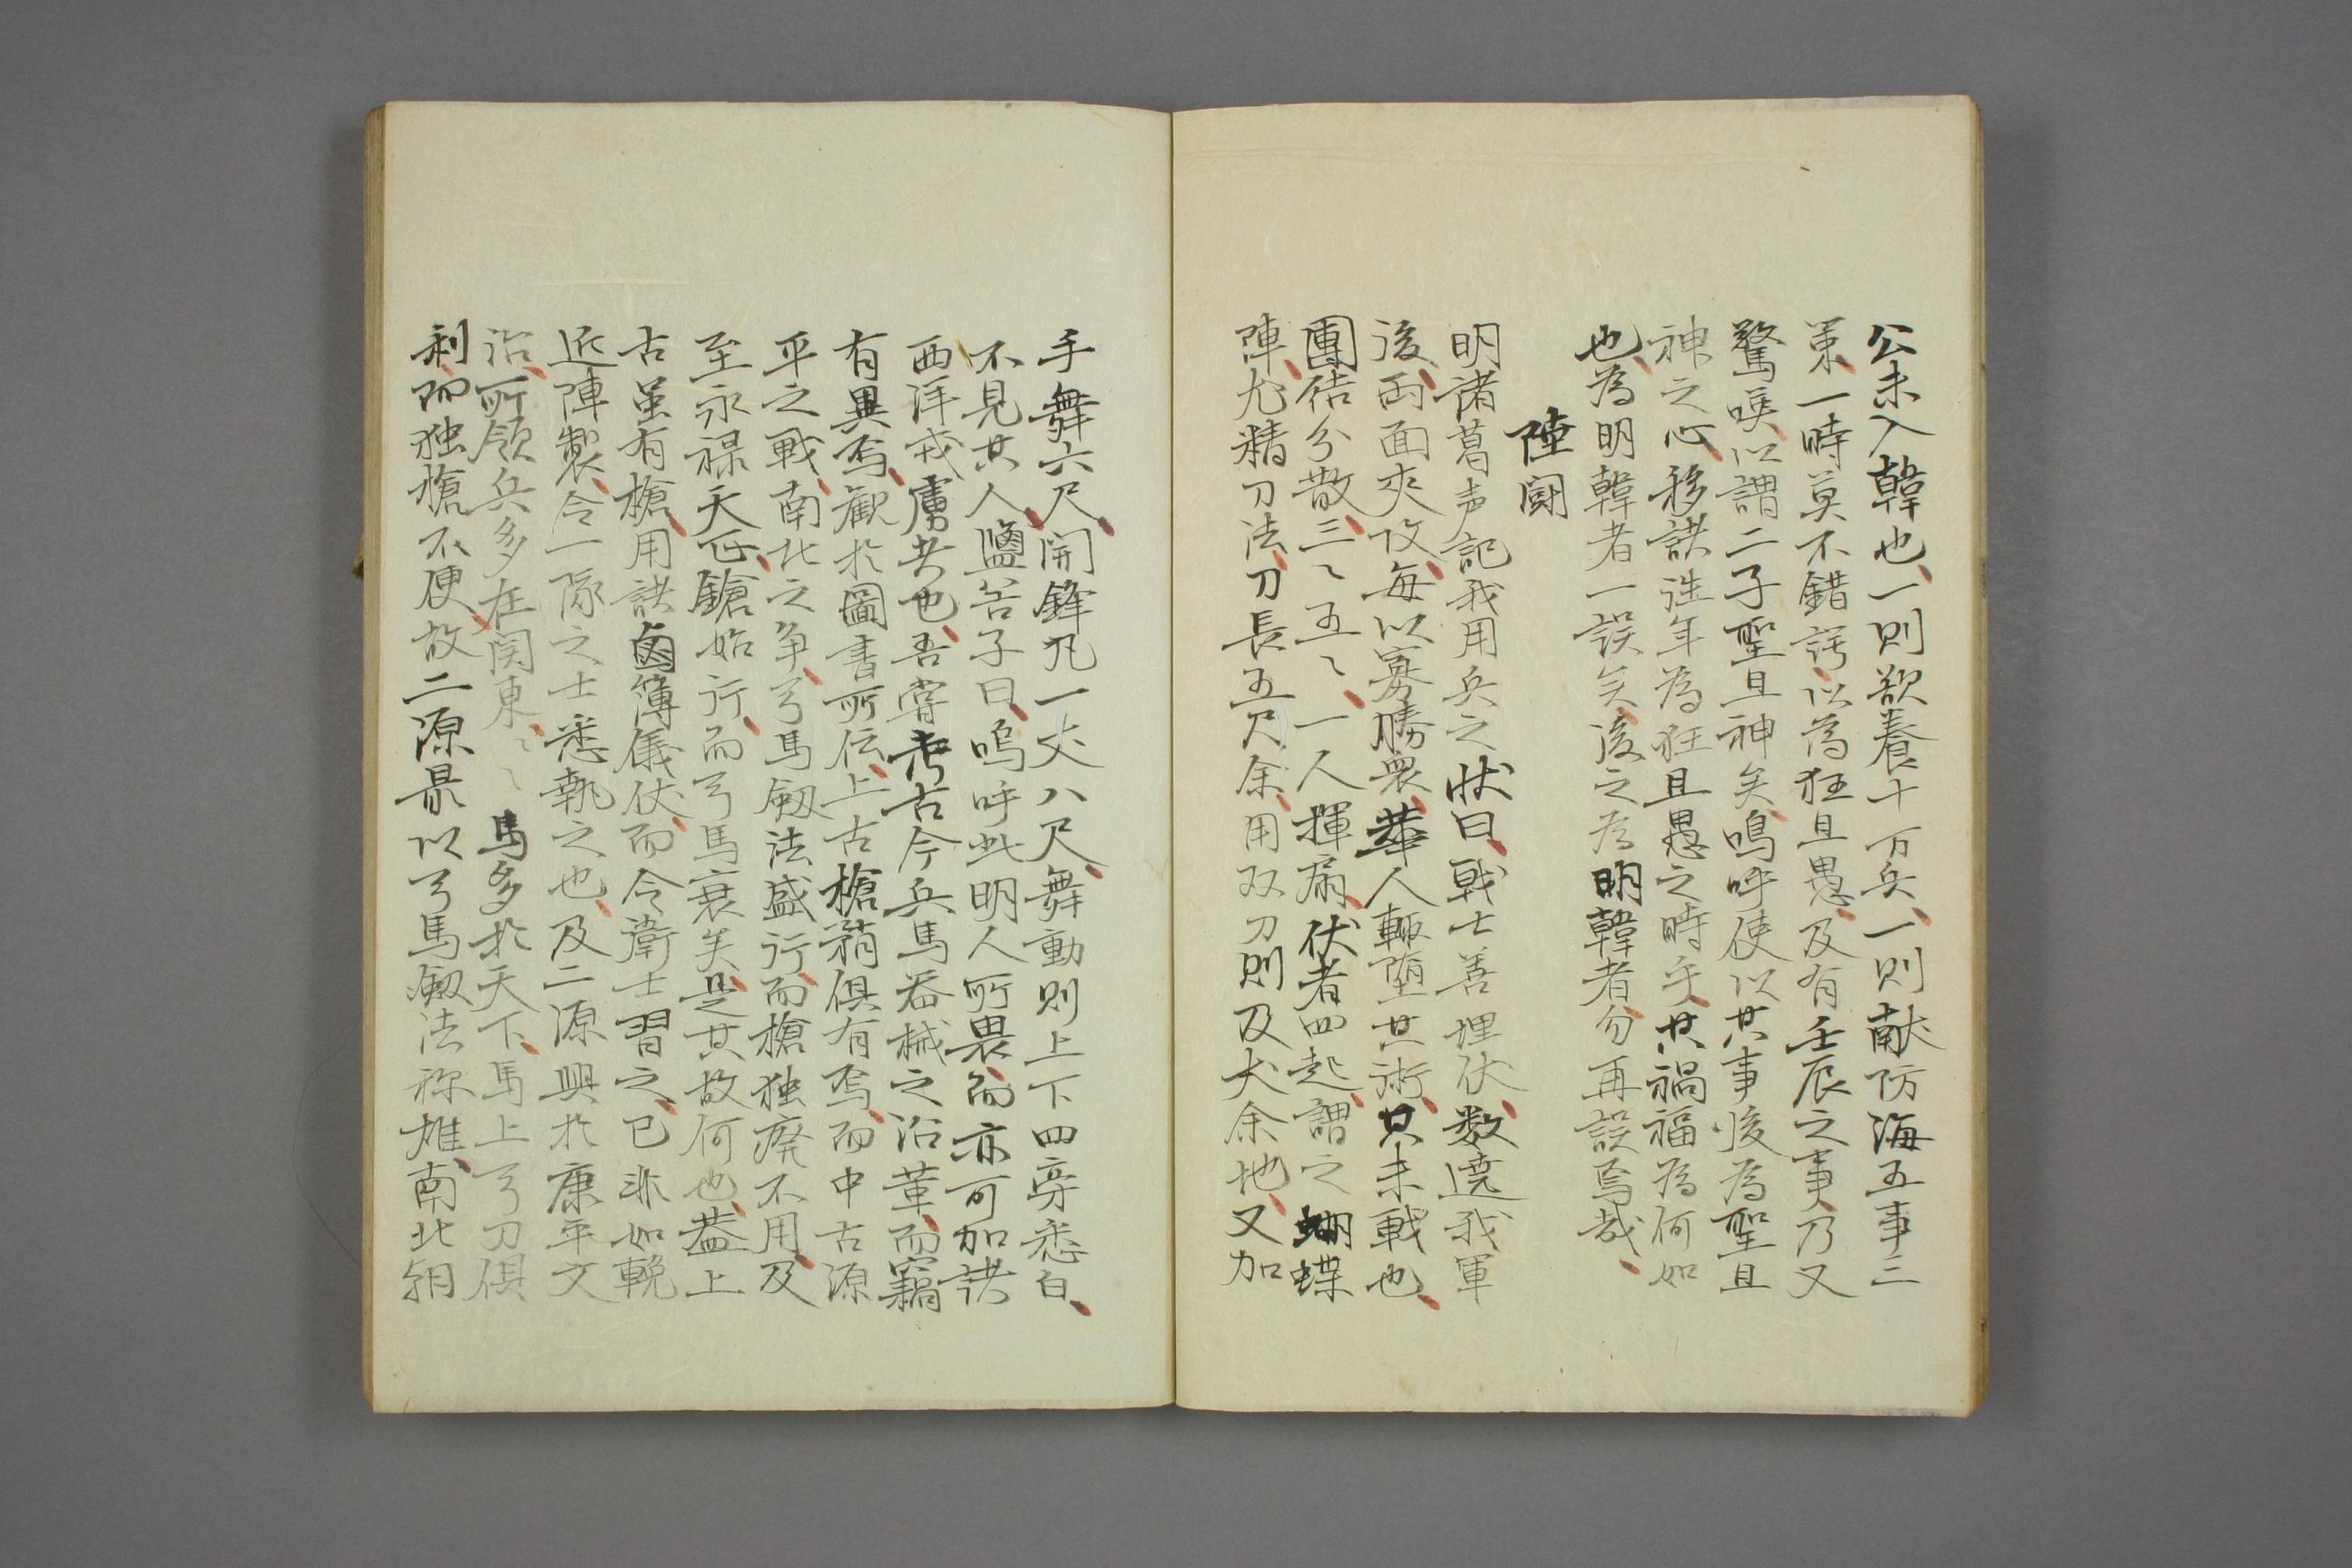 公未入韓也、一則欲養十万兵、一則献防海五事三
策、一時莫不錯愕、以為狂且愚、及有壬辰之事、乃又
驚嘆以謂二子聖且神矣、嗚呼使以其事後為聖且
神之心、移諸往年為狂且愚之時乎、其禍福為何如
也、為明韓者一誤矣、後之為明韓者勿再誤焉哉、
陸闘
明諸葛声記我用兵之状曰、戦士善埋伏、数遶我軍
後、両面夾攻、毎以寡勝衆、華人輙堕其術、其未戦也、
團結分散、三〻五〻、一人揮扇、伏者四起、謂之蝴蝶
陣、尤精刀法、刀長五尺余、用双刀則及丈余地、又加
手舞六尺、開鋒凡一丈八尺、舞動則上下四旁悉白、
不見其人、鹽谷子曰、嗚呼此明人所畏、而亦可加諸
西洋戎虜者也、吾嘗考古今兵馬器械之沿革、而竊
有異焉、観於圖書所伝、上古槍矟倶有焉、而中古源
平之戦、南北之争、弓馬劔法盛行、而槍独廃不用、及
至永禄天正、鎗始行、而弓馬衰矣、是其故何也、蓋上
古虽有槍、用諸鹵簿儀仗、而令衛士習之、已非如輓
近陣製、令一隊之士悉執之也、及二源興於康平文
治、所領兵多在関東、〻〻馬多於天下、馬上弓刀倶
利、而独槍不便、故二源最以弓馬劔法称雄、南北朝